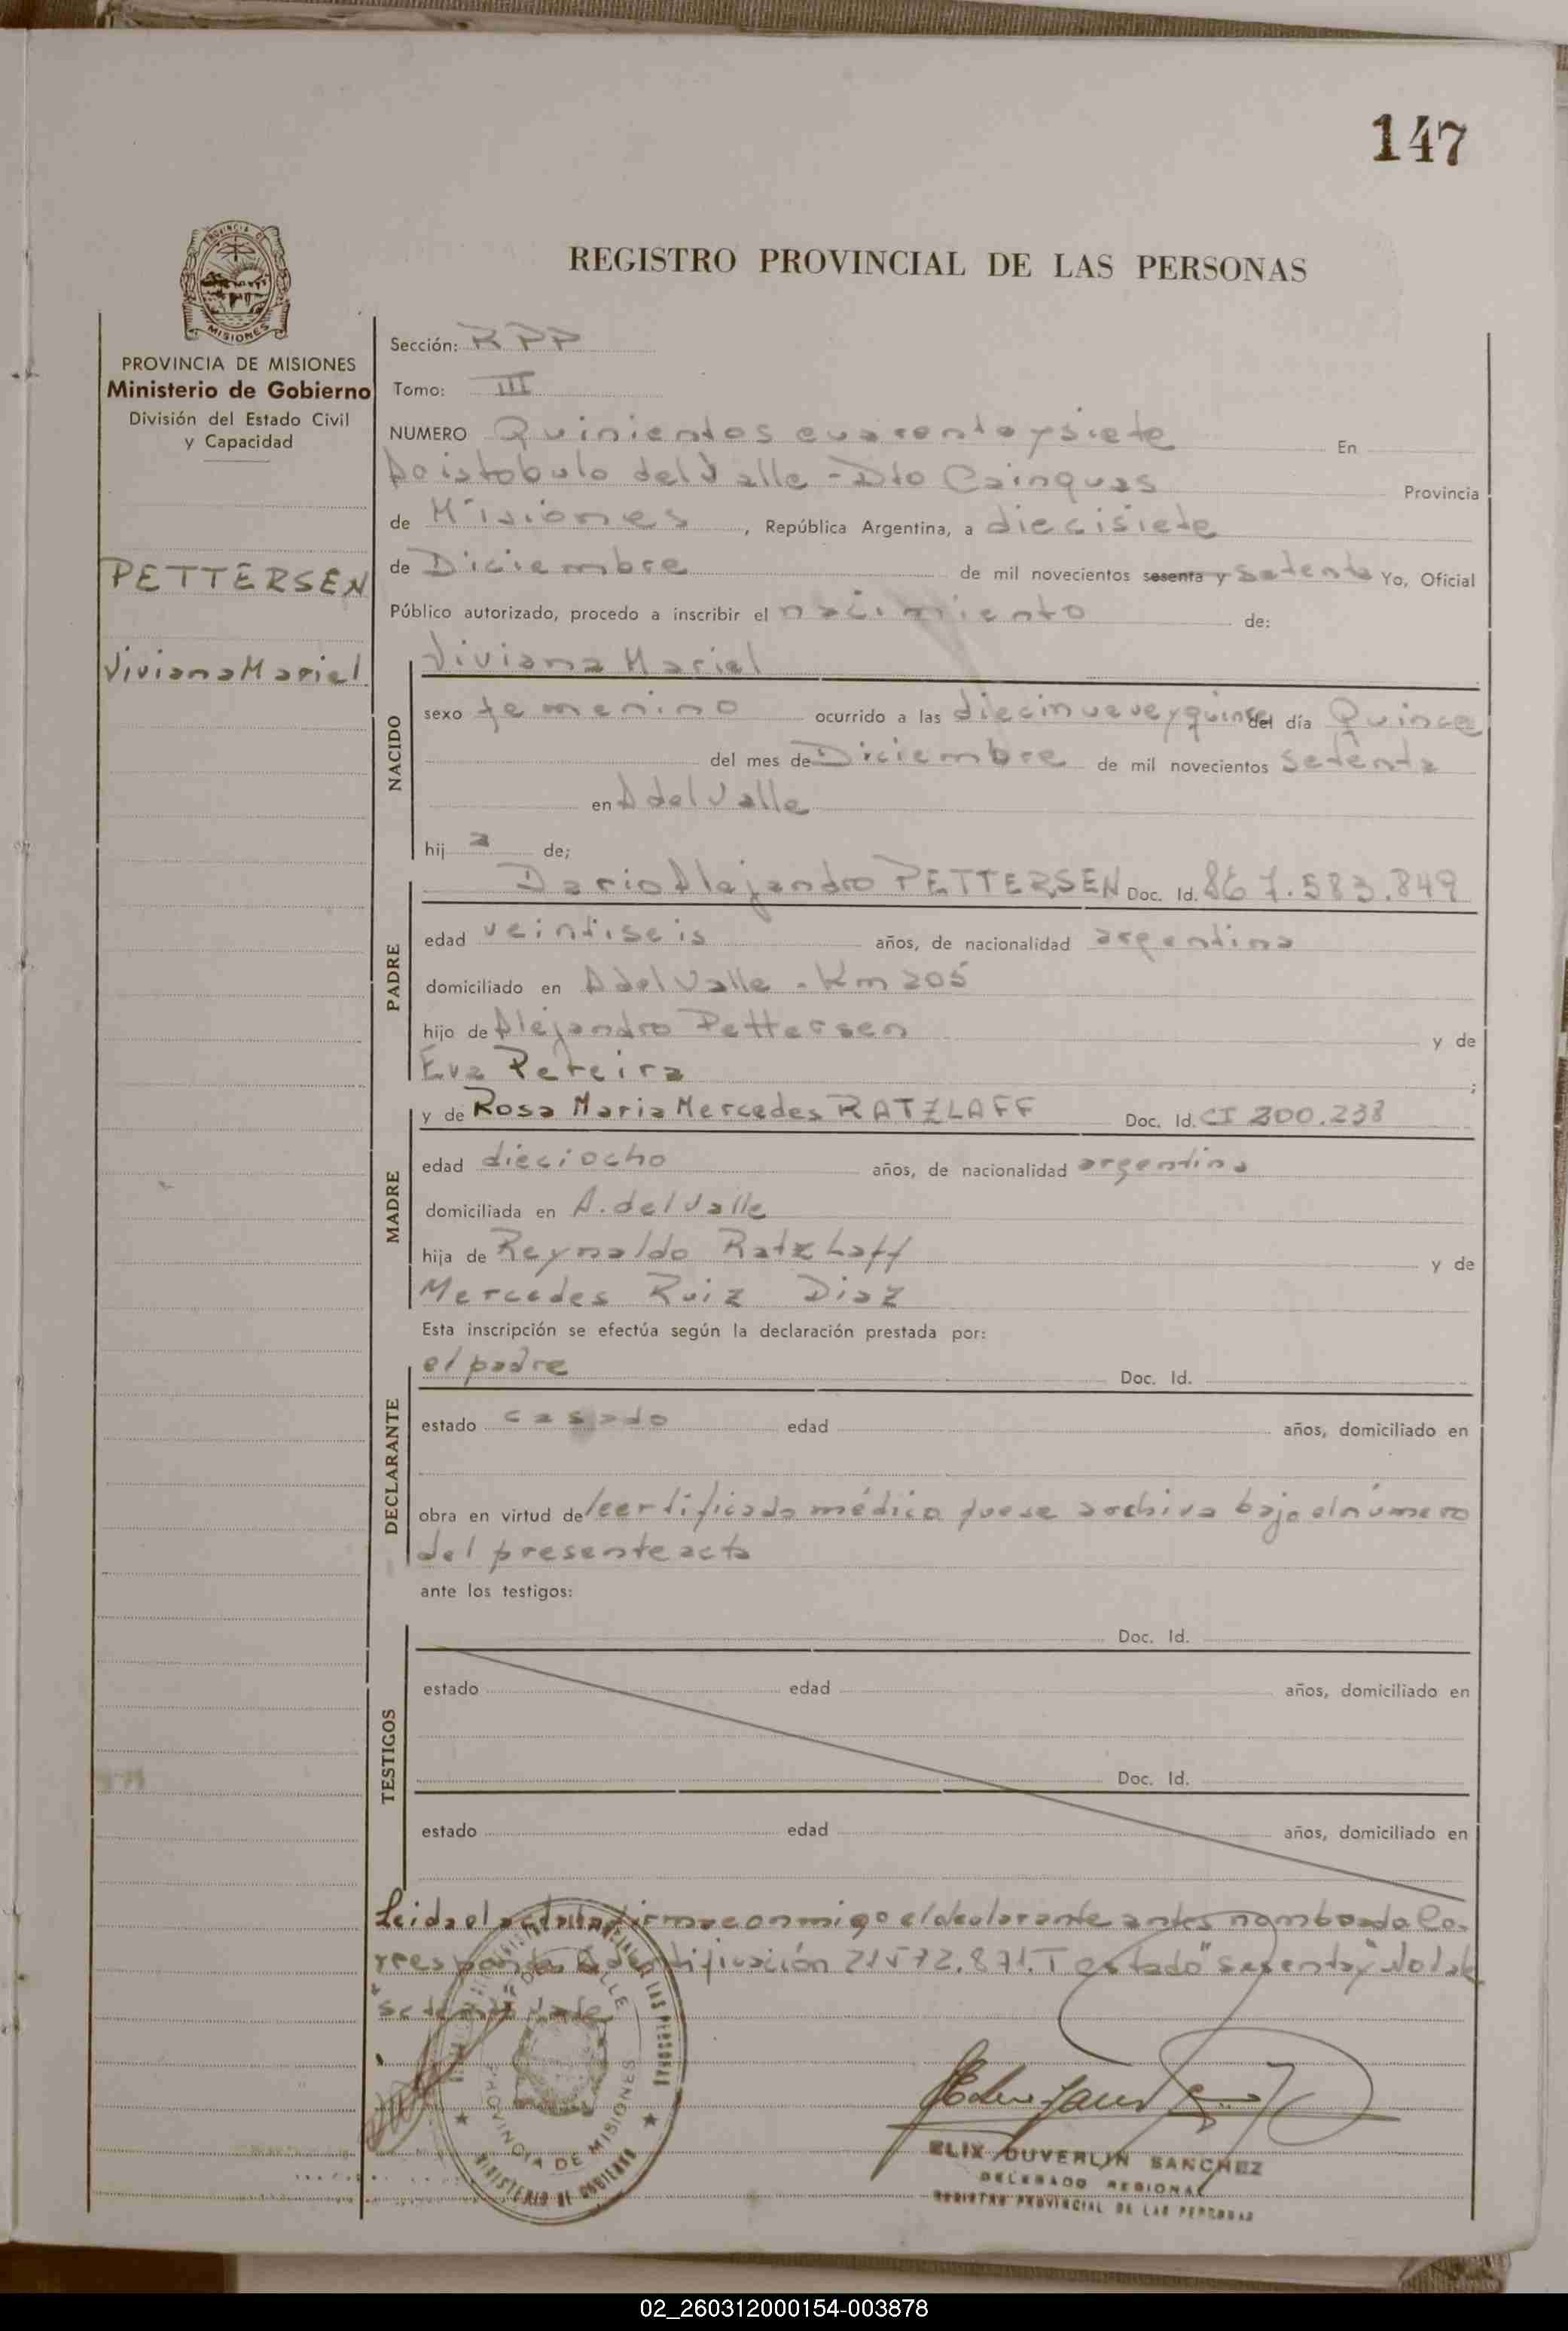 147
REGISTRO PROVINCIAL DE LAS PERSONAS
MISIONES
PROVINCIA DE MISIONES
Ministerio de Gobierno
División del Estado Civil
y Capacidad
PETTERSEN
Viviana Mariel
Sección: RPP
Tomo: III
NUMERO Quinientos cuarenta y siete En
Aristobulo del Valle - Dto Cainguas Provincia
de Misiones, República Argentina, a diecisiete
de Diciembre de mil novecientos sesenta y setenta Yo, Oficial
Público autorizado, procedo a inscribir el nacimiento de:
NACIDO
Viviana Mariel
sexo femenino ocurrido a las diecinueve y quince del día Quince
del mes de Diciembre de mil novecientos setenta
en A del Valle
hij a de;
PADRE
Dario Alejandro PETTERSEN Doc. Id. 7.583.849
edad veintiseis años, de nacionalidad argentina
domiciliado en A del Valle - Km 205
hijo de Alejandro Pettersen y de
Eva Pereira ;
MADRE
y de Rosa Maria Mercedes RATZLAFF Doc. Id. CI 300.238
edad dieciocho años, de nacionalidad argentina
domiciliada en A. del Valle
hija de Reynaldo Ratzlaff y de
Mercedes Ruiz Diaz
Esta inscripción se efectúa según la declaración prestada por:
DECLARANTE
el padre Doc. Id.
estado casado edad años, domiciliado en
obra en virtud de certificado médico que se archiva bajo el número
del presente acta
ante los testigos:
TESTIGOS
Doc. Id.
estado edad años, domiciliado en
Doc. Id.
estado edad años, domiciliado en
Leida el acta firma conmigo el declarante antes nombrado Co-
rresponde Identificación 21572.871. Testado "sesenta y" No Vale
setenta Vale
PROVINCIA DE MISIONES
MINISTERIO DE GOBIERNO
ELIX DUVERLIN SANCHEZ
DELEGADO REGIONAL
REGISTRO PROVINCIAL DE LAS PERSONAS
02_260312000154-003878